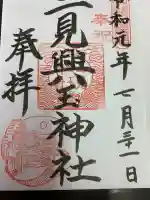 奉祝
令和元年 七月三十一日
二見興玉神社
奉拝